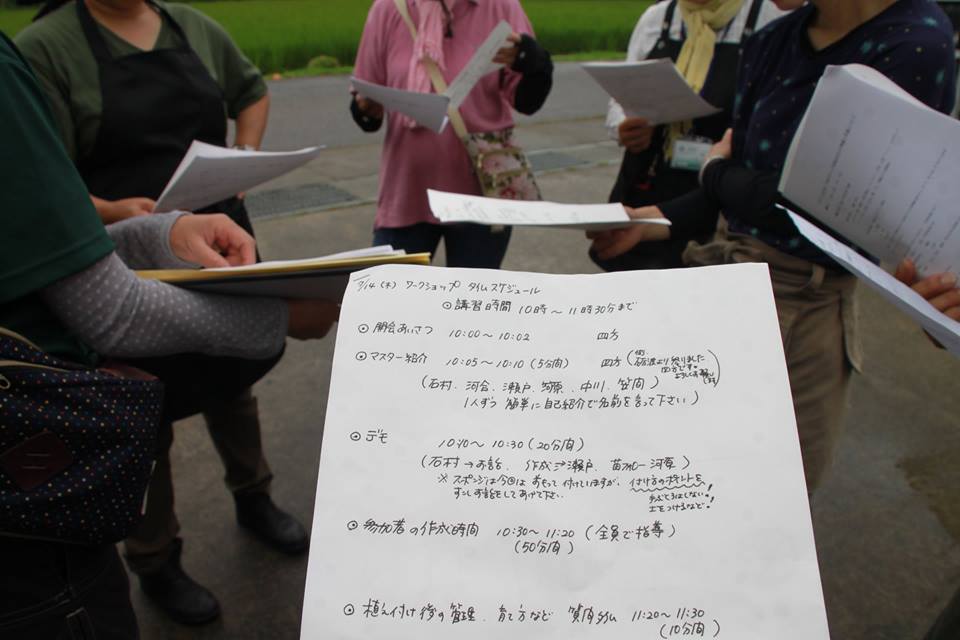 7/14(木) ワークショップ タイムスケジュール
◎講習時間 10時~11時30分まで
◎開会あいさつ 10:00~10:02 四方
◎マスター紹介 10:05~10:10(5分間) 四方(
より参りました
四方です。
(石村、河合、瀬戸、河原、中川、笠間)
1人ずつ 簡単に自己紹介で名前を言って下さい)
◎デモ 10:10~10:30(20分間)
(石村→お話、作成→瀬戸、苗フォロー河原)
※スポンジは今回は 前もって付けていますが、付け方のポイントを
すこしお話をしてあげて下さい。
土をつけるなど!
◎参加者の作成時間 10:30~11:20(全員で指導)
(50分間)
◎植え付け後の管理、育て方など 質問タイム 11:20~11:30
(10分間)